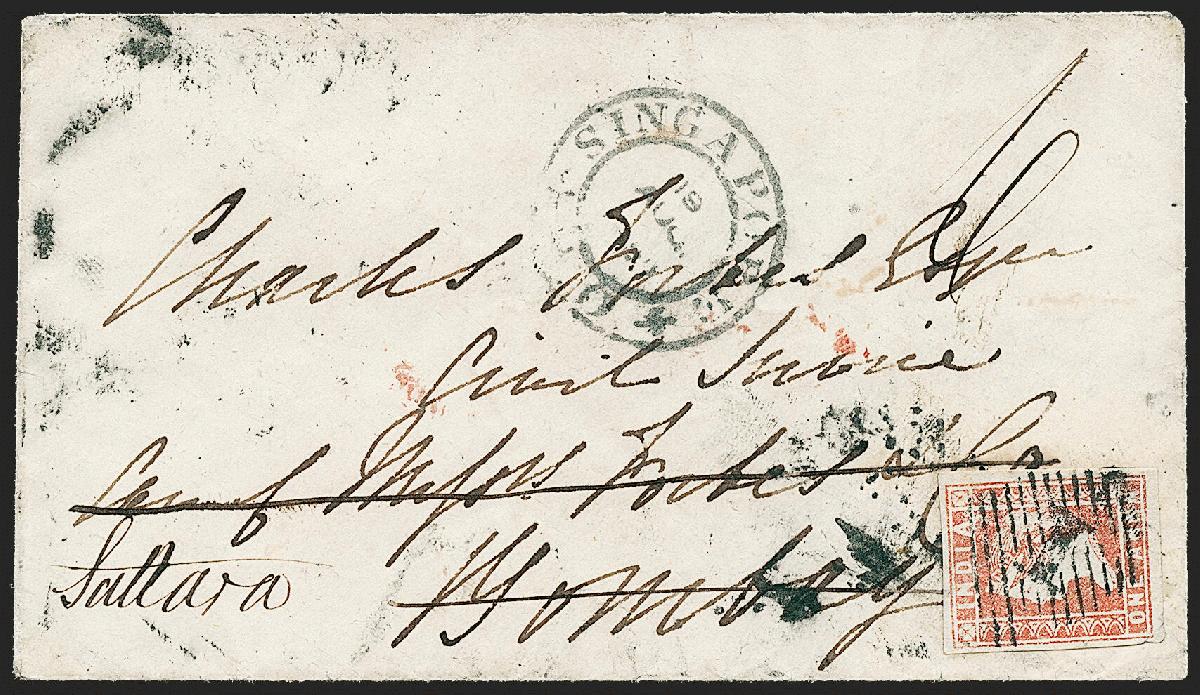 SINGAPORE
Charles Forbes Esqre
Civil Service
Care of Messrs Forbes & Co
Bombay
Sattara
INDIA
ONE ANNA